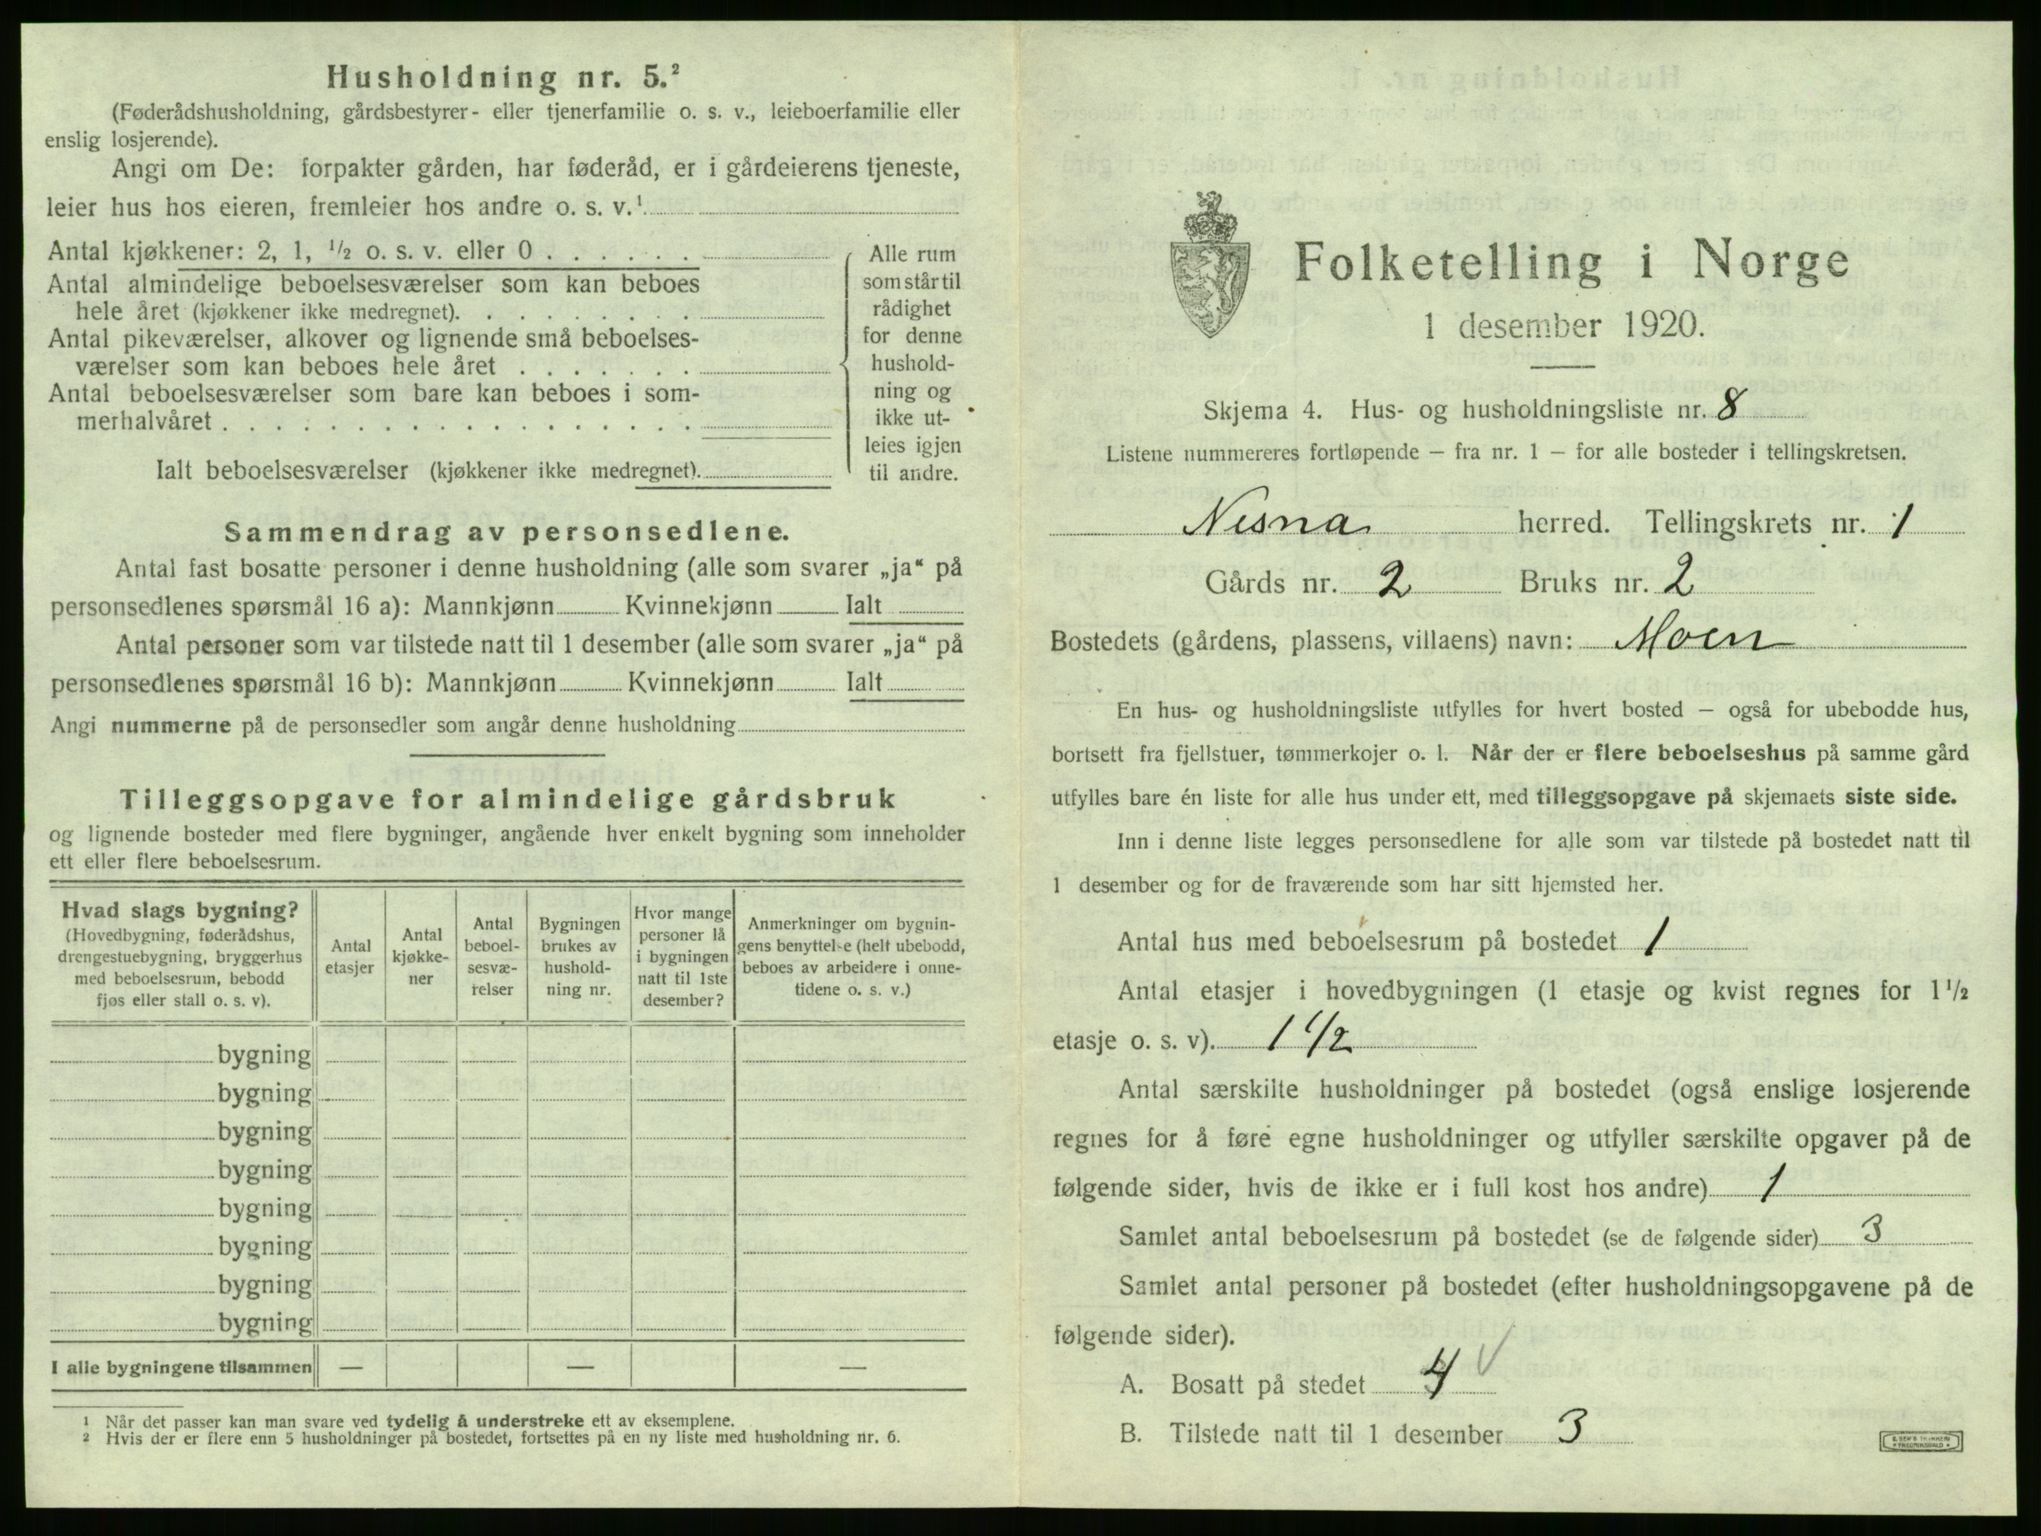 Husholdning nr. 5.²
(Føderådshusholdning, gårdsbestyrer- eller tjenerfamilie o. s. v., leieboerfamilie eller
enslig losjerende).
Angi om De: forpakter gården, har føderåd, er i gårdeierens tjeneste,
leier hus hos eieren, fremleier hos andre o. s. v.¹
Antal kjøkkener: 2, 1, ½ o. s. v. eller 0
Antal almindelige beboelsesværelser som kan beboes
hele året (kjøkkener ikke medregnet).
Antal pikeværelser, alkover og lignende små beboelses-
værelser som kan beboes hele året
Antal beboelsesværelser som bare kan beboes i som-
merhalvåret
Ialt beboelsesværelser (kjøkkener ikke medregnet).
Alle rum
som står til
rådighet
for denne
hushold-
ning og
ikke ut-
leies igjen
til andre.
Sammendrag av personsedlene.
Antal fast bosatte personer i denne husholdning (alle som svarer „ja“ på
personsedlenes spørsmål 16 a): Mannkjønn Kvinnekjønn Ialt
Antal personer som var tilstede natt til 1 desember (alle som svarer „ja“ på
personsedlenes spørsmål 16 b): Mannkjønn Kvinnekjønn Ialt
Angi nummerne på de personsedler som angår denne husholdning
Tilleggsopgave for almindelige gårdsbruk
og lignende bosteder med flere bygninger, angående hver enkelt bygning som inneholder
ett eller flere beboelsesrum.
Hvad slags bygning?
(Hovedbygning, føderådshus,
drengestuebygning, bryggerhus
med beboelsesrum, bebodd
fjøs eller stall o. s. v).
Antal
etasjer
Antal
kjøkke-
ner
Antal
beboel-
sesvæ-
relser
Bygningen
brukes av
hushold-
ning nr.
Hvor mange
personer lå
i bygningen
natt til 1ste
desember?
Anmerkninger om bygnin-
gens benyttelse (helt ubebodd,
beboes av arbeidere i onne-
tidene o. s. v.)
bygning
bygning
bygning
bygning
bygning
bygning
bygning
bygning
I alle bygningene tilsammen — — —
¹ Når det passer kan man svare ved tydelig å understreke ett av eksemplene.
² Hvis der er flere enn 5 husholdninger på bostedet, fortsettes på en ny liste med husholdning nr. 6.
Folketelling i Norge
1 desember 1920.
Skjema 4. Hus- og husholdningsliste nr. 8
Listene nummereres fortløpende – fra nr. 1 – for alle bosteder i tellingskretsen.
Nesna herred. Tellingskrets nr. 1
Gårds nr. 2 Bruks nr. 2
Bostedets (gårdens, plassens, villaens) navn: Moen
En hus- og husholdningsliste utfylles for hvert bosted – også for ubebodde hus,
bortsett fra fjellstuer, tømmerkojer o. l. Når der er flere beboelseshus på samme gård
utfylles bare én liste for alle hus under ett, med tilleggsopgave på skjemaets siste side.
Inn i denne liste legges personsedlene for alle som var tilstede på bostedet natt til
1 desember og for de fraværende som har sitt hjemsted her.
Antal hus med beboelsesrum på bostedet 1
Antal etasjer i hovedbygningen (1 etasje og kvist regnes for 1½
etasje o. s. v). 1 1/2
Antal særskilte husholdninger på bostedet (også enslige losjerende
regnes for å føre egne husholdninger og utfyller særskilte opgaver på de
følgende sider, hvis de ikke er i full kost hos andre) 1
Samlet antal beboelsesrum på bostedet (se de følgende sider) 3
Samlet antal personer på bostedet (efter husholdningsopgavene på de
følgende sider).
A. Bosatt på stedet 4 √
B. Tilstede natt til 1 desember 3